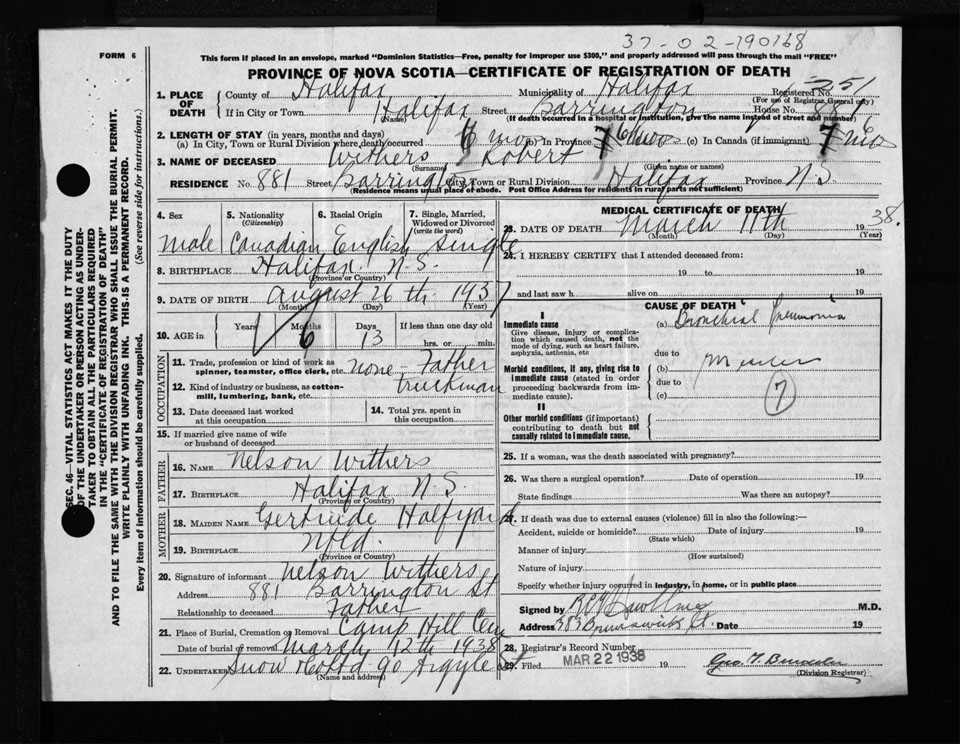 37-02-190168
FORM 6
This form if placed in an envelope, marked "Dominion Statistics—Free, penalty for improper use $300," and properly addressed will pass through the mail "FREE"
PROVINCE OF NOVA SCOTIA—CERTIFICATE OF REGISTRATION OF DEATH
SEC. 46—VITAL STATISTICS ACT MAKES IT THE DUTY
OF THE UNDERTAKER OR PERSON ACTING AS UNDER-
TAKER TO OBTAIN ALL THE PARTICULARS REQUIRED
IN THE "CERTIFICATE OF REGISTRATION OF DEATH"
AND TO FILE THE SAME WITH THE DIVISION REGISTRAR WHO SHALL ISSUE THE BURIAL PERMIT.
WRITE PLAINLY WITH UNFADING INK. THIS IS A PERMANENT RECORD.
Every item of information should be carefully supplied. (See reverse side for instructions.)
1. PLACE OF DEATH
County of Halifax Municipality of Halifax Registered No. 251
(For use of Registrar General only)
If in City or Town Halifax Street Barrington House No. 881
(Name) (If death occurred in a hospital or institution, give the name instead of street and number)
2. LENGTH OF STAY (in years, months and days)
(a) In City, Town or Rural Division where death occurred 6 mos (b) In Province 6 mos (c) In Canada (if immigrant) 7 mos
3. NAME OF DECEASED Withers Robert
(Surname) (Given name or names)
RESIDENCE No. 881 Street Barrington City, Town or Rural Division Halifax Province N.S.
(Residence means usual place of abode. Post Office Address for residents in rural parts not sufficient)
4. Sex 5. Nationality (Citizenship) 6. Racial Origin 7. Single, Married, Widowed or Divorced (write the word)
male Canadian English single
8. BIRTHPLACE Halifax N.S.
(Province or Country)
9. DATE OF BIRTH August 26th 1937
(Month) (Day) (Year)
10. AGE in Years Months Days If less than one day old
6 13 hrs. or min.
OCCUPATION
11. Trade, profession or kind of work as none Father
spinner, teamster, office clerk, etc.
12. Kind of industry or business, as cotton- truckman
mill, lumbering, bank, etc.
13. Date deceased last worked at this occupation 14. Total yrs. spent in this occupation
15. If married give name of wife
or husband of deceased
FATHER
16. NAME Nelson Withers
17. BIRTHPLACE Halifax N.S.
(Province or Country)
MOTHER
18. MAIDEN NAME Gertrude Halfyard
19. BIRTHPLACE Nfld.
(Province or Country)
20. Signature of informant Nelson Withers
Address 881 Barrington St
Relationship to deceased Father
21. Place of Burial, Cremation or Removal Camp Hill Cem
Date of burial or removal March 12th 1938
22. UNDERTAKER Snow & Co Ltd 90 Argyle St
(Name and address)
MEDICAL CERTIFICATE OF DEATH
23. DATE OF DEATH March 11th 1938.
(Month) (Day) (Year)
24. I HEREBY CERTIFY that I attended deceased from:
19 to 19
and last saw h alive on 19
CAUSE OF DEATH
I
Immediate cause
Give disease, injury or complica-
tion which caused death, not the
mode of dying, such as heart failure,
asphyxia, asthenia, etc
(a) Bronchial Pneumonia
due to
Morbid conditions, if any, giving rise to
immediate cause (stated in order
proceeding backwards from im-
mediate cause).
(b) Measles
due to
(c)
7
II
Other morbid conditions (if important)
contributing to death but not
causally related to immediate cause.
25. If a woman, was the death associated with pregnancy?
26. Was there a surgical operation? Date of operation 19
State findings Was there an autopsy?
27. If death was due to external causes (violence) fill in also the following:—
Accident, suicide or homicide? Date of injury 19
(State which)
Manner of injury
(How sustained)
Nature of injury
Specify whether injury occurred in industry, in home, or in public place
Signed by M.D.
Address 383 Brunswick St. Date 19
28. Registrar's Record Number
29. Filed MAR 22 1938 19 Geo. T.
(Division Registrar)